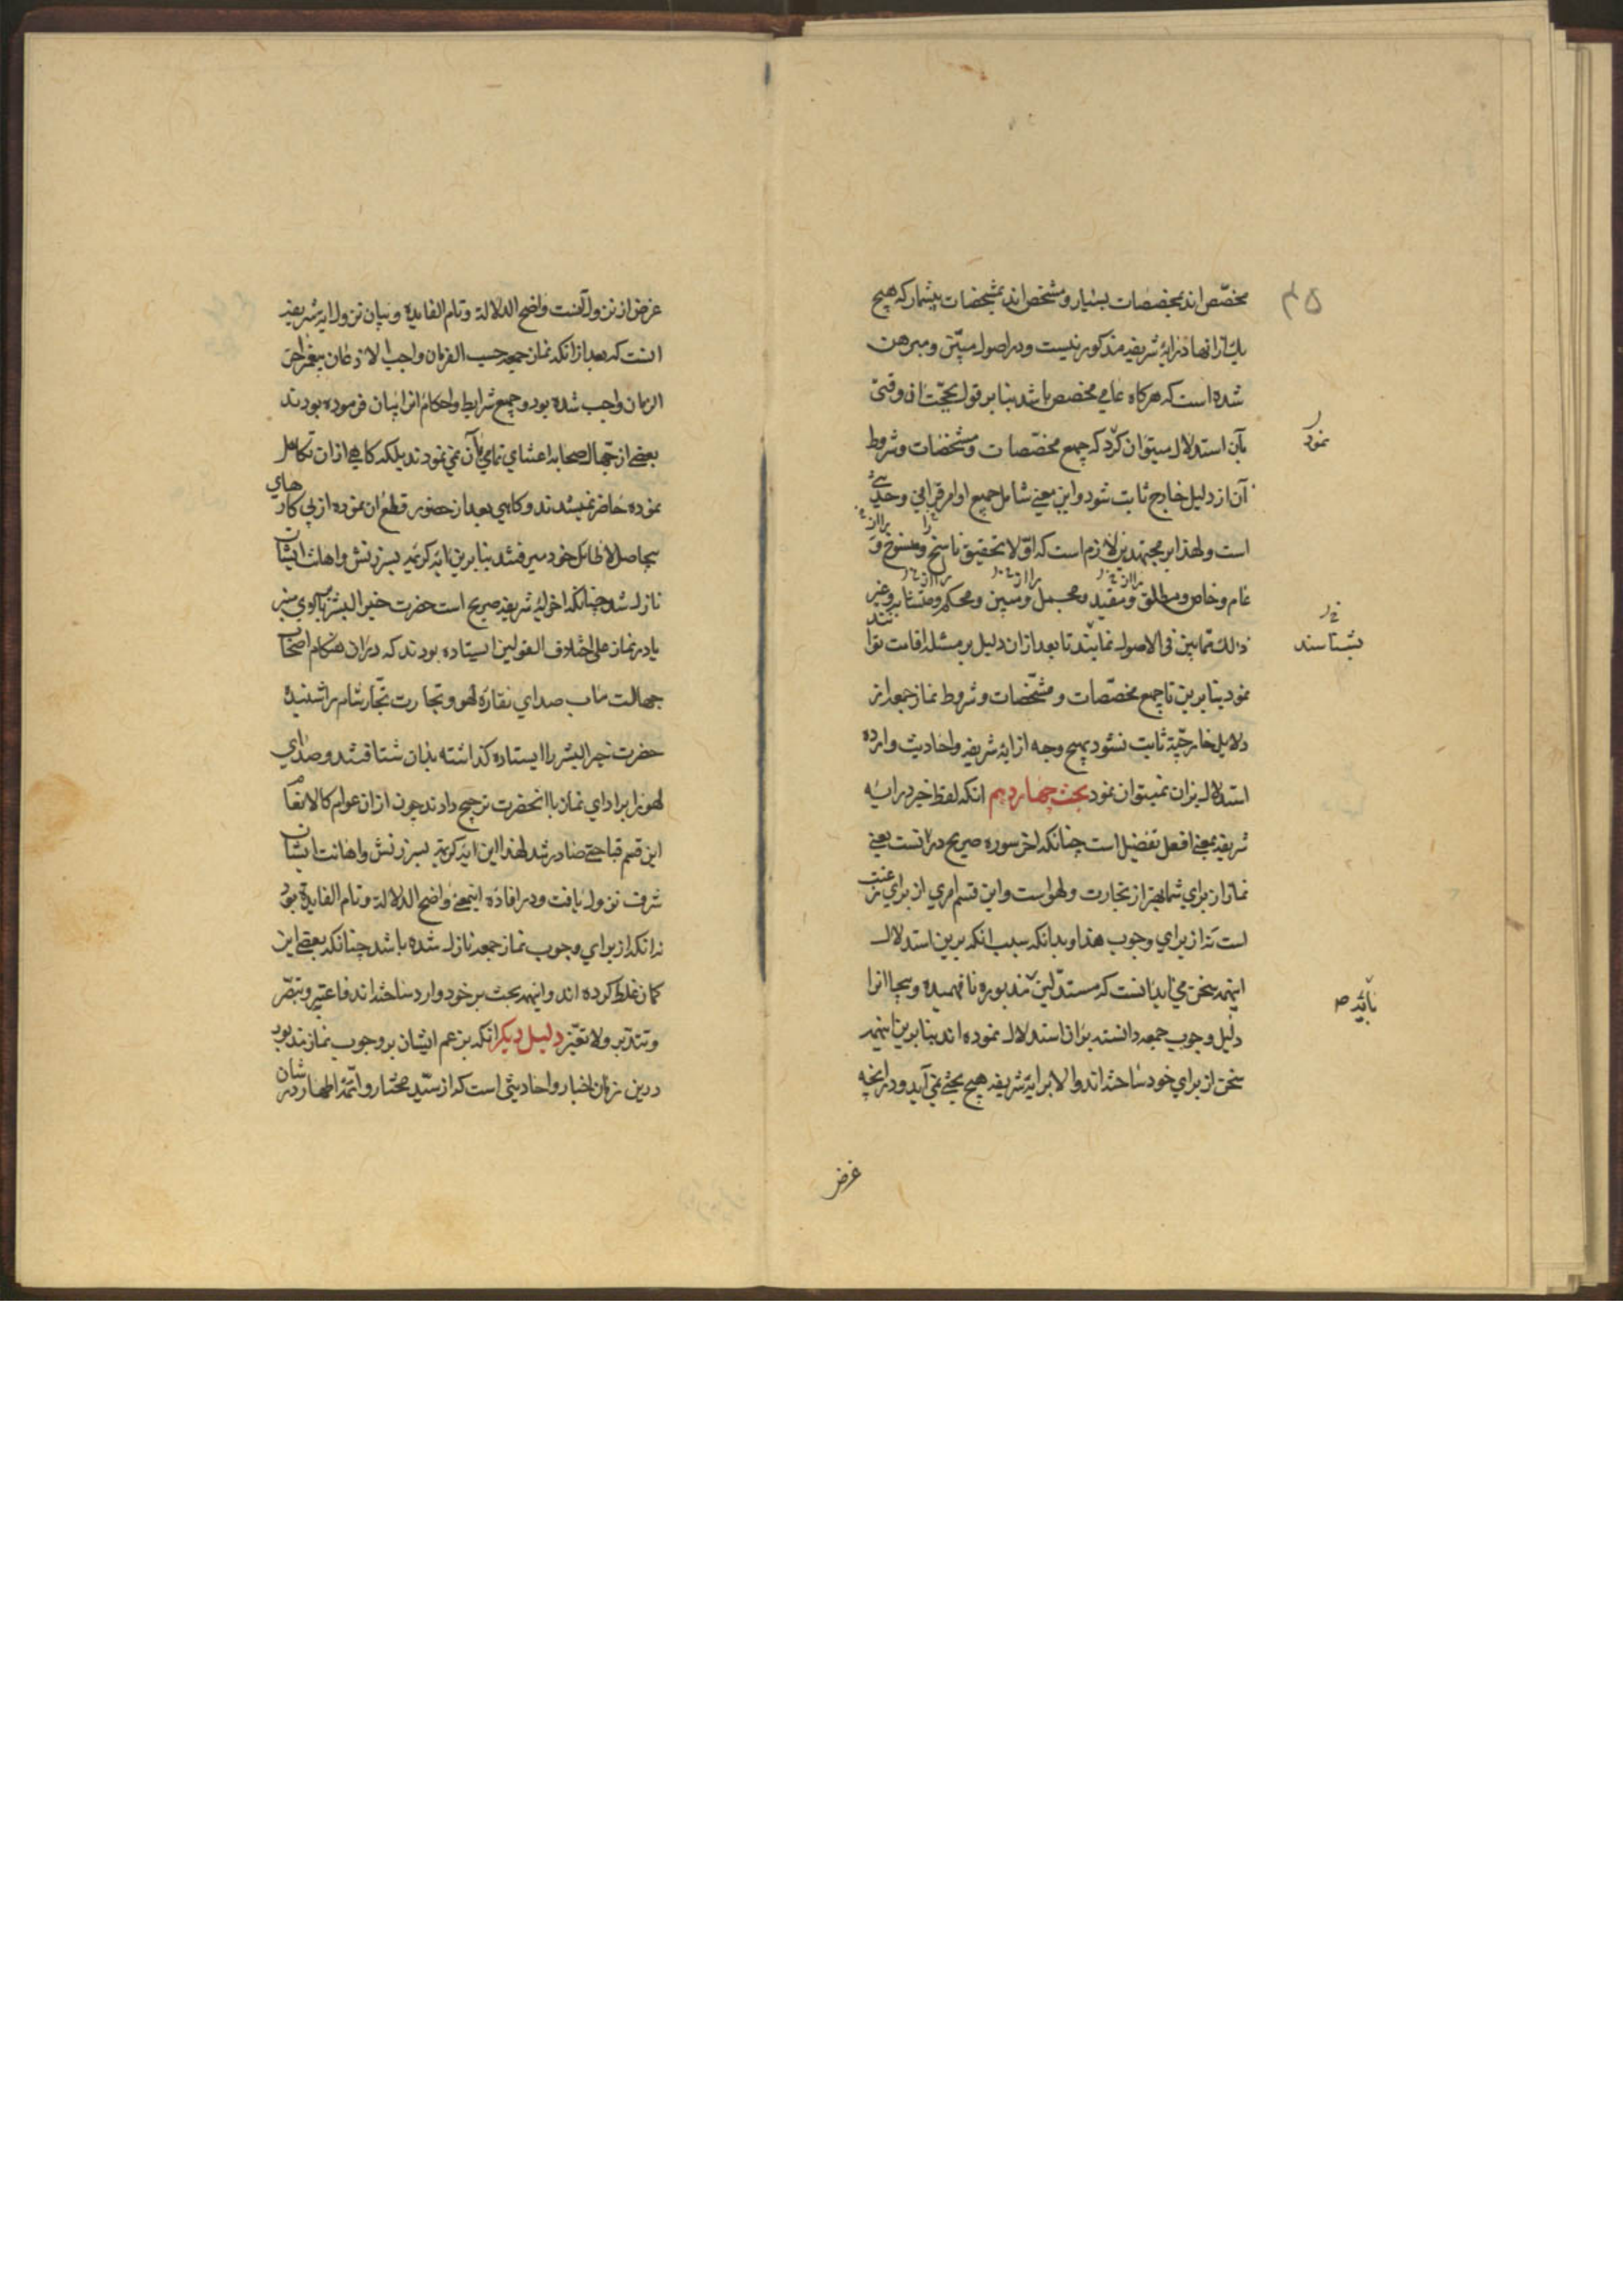 مخصّص اند بمخصصات بسیار و مشخص اند بمشخصات بیشمار که هیچ
یك از انها در ایهٔ شریفه مذکور نیست و در اصول مبیّن و مبرهن
شده است که هر کاه عامی مخصص باشد بنا بر قول بحجّت ان وقتی
بآن استدلال میتوان کرد که جمیع مخصّصات و مشخصات و شروط
آن از دلیل خارج ثابت شود و این معنی شامل جمیع اوامر قرانی و حدیثی
است و لهذا بر مجتهدین لازم است که اوّلا تحقیق ناسخ را از منسوخ و
عام و خاص و مطلق را از مقید و مجمل را از مبین و محکم را از متشابه و غیر
ذلك مما بین فی الاصول نمایند تا بعد از ان دلیل بر مسئله اقامت توا
نمود بنا برین تا جمیع مخصّصات و مشخّصات و شروط نماز جمعه از
دلایل خارجیّه ثابت نشود بهیچ وجه از ایه شریفه و احادیث وارده
استدلال بران نمیتوان نمود بحث چهاردهم انکه لفظ خیر در ایه
شریفه بمعنی افعل تفضیل است چنانکه اخر سوره صریح در انست یعنی
نماز از برای شما بهتر از تجارت و لهو است و این قسم امری از برای
است نه از برای وجوب هذا و بدانکه سبب انکه برین استدلال
اینهمه سخن می اید انست که مستدلین مذبوره نا فهمیده و بیجا انرا
دلیل وجوب جمعه دانسته بران استدلال نموده اند بنا برین اینهمه
سخن از برای خود ساخته اند و الا بر ایهٔ شریفه هیچ بحثی نمی آید و در انچه
نمود
بشناسند
غرض
غرض از نزول آنست واضح الدلالة و تام الفایده و بیان نزول ایهٔ شریفه
انست که بعد از انکه نماز جمعه حسب الفرمان واجب الاذعان پیغمبر اخر
الزمان واجب شده بود و جمیع شرایط و احکام انرا بیان فرموده بودند
بعضی از جهّال صحابه اعتنای تمامی بآن نمی نمودند بلکه کاهی از ان تکاهل
نموده حاضر نمیشدند و کاهی بعد از حضور قطع ان نموده از پی کارهای
بیحاصل لاطائل خود میرفتند بنا برین ایه کریمه بسرزنش و اهانت ایشان
نازل شد چنانکه اخر ایهٔ شریفه صریح است حضرت خیر البشر بالای منبر
یا در نماز علی اختلاف القولین ایستاده بودند که در ان هنکام اصحاب
جهالت مآب صدای نقاره لهو و تجارت تجّار شام را شنیده
حضرت خیر البشر را ایستاده کذاشته بدان شتافتند و صدای
لهو را بر ادای نماز با انحضرت ترجیح دادند چون از ان عوام کالانعام
این قسم قباحتی صادر شد لهذا این ایه کریمه بسرزنش و اهانت ایشان
شرف نزول یافت و در افاده اینمعنی واضح الدلالة و تام الفایدة بود
نه انکه از برای وجوب نماز جمعه نازل شده باشد چنانکه بعضی این
کمان غلط کرده اند و اینهمه بحث بر خود وارد ساخته اند فاعتبر و تبصّر
و تتدبر ولا تغیّر دلیل دیکر انکه بزعم ایشان بر وجوب نماز مذبور
درین زمان اخبار و احادیثی است که از سیّد مختار و ائمّه اطهار در شان